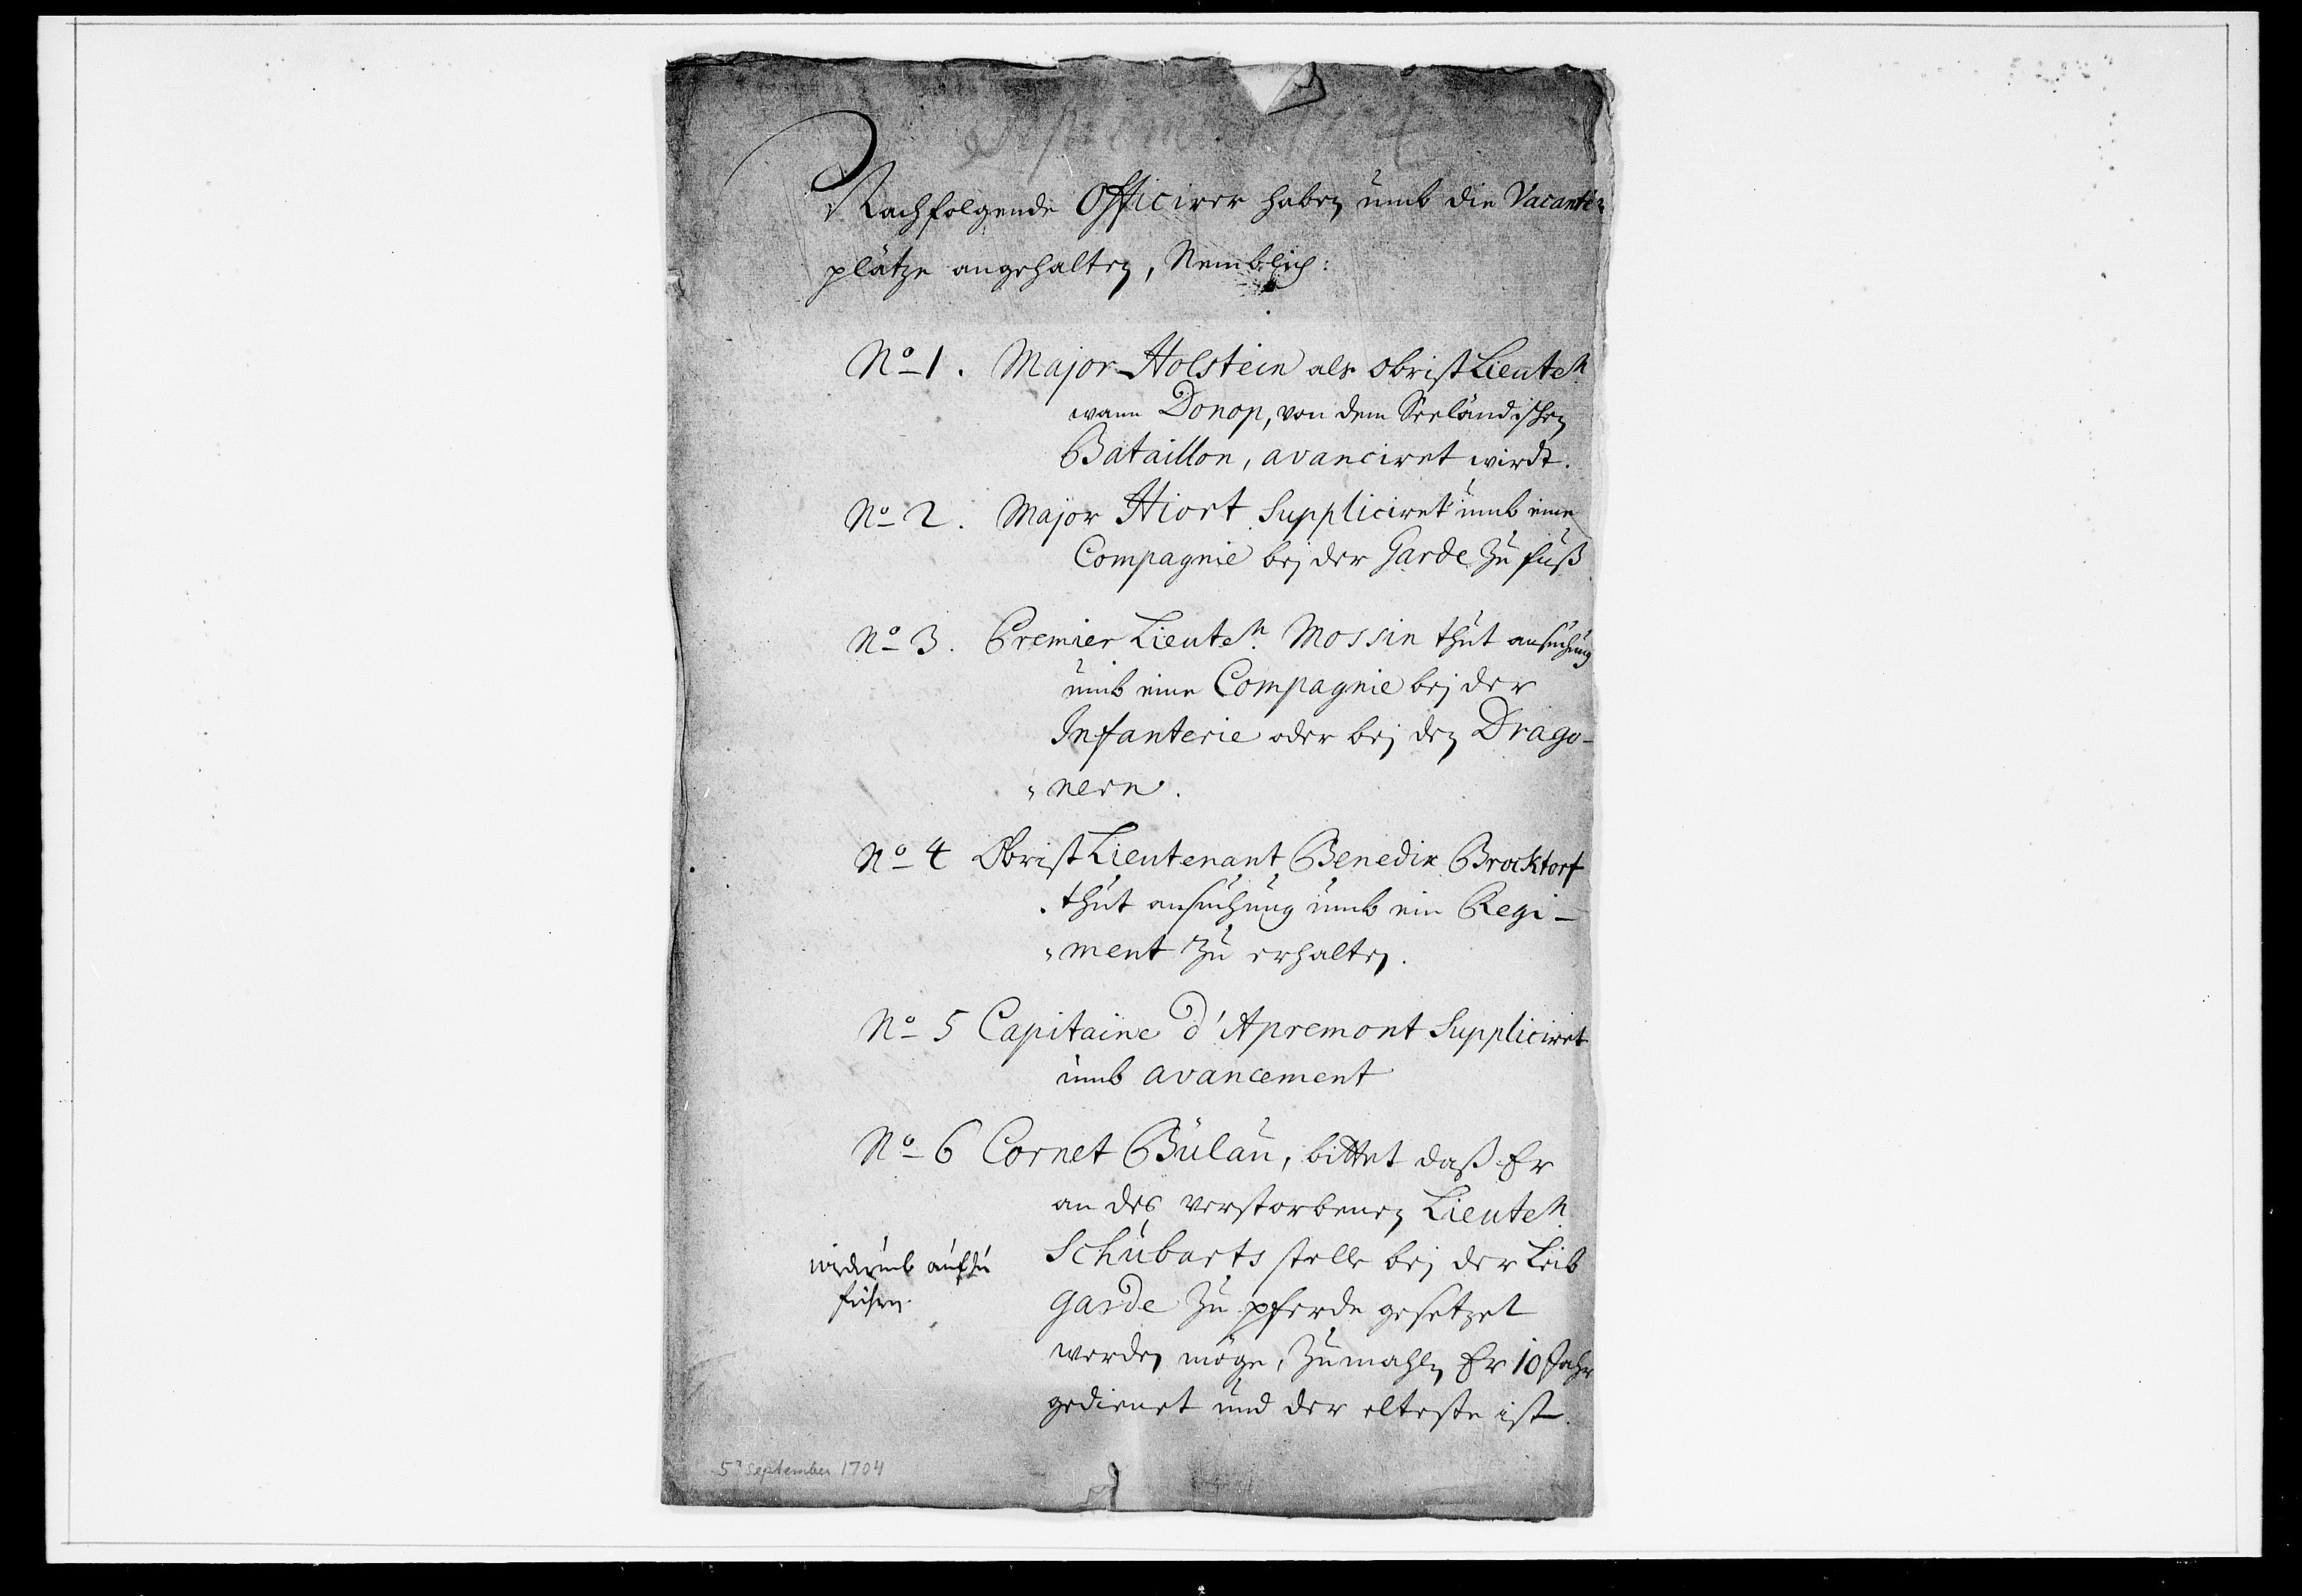 September 1704
Nachfolgende Officirer haben umb die Vacante
plätze angehalten, Nemblich:
No 1. Major Holstein als Obrist Lieuten.
wann Donop, von dem Seeländischen
Bataillon, avanciret wirdt.
No 2. Major Hiort Suppliciret umb eine
Compagnie bej der Garde zu fuß
No 3. Premier Lieuten. Mossin thut ansuchung
umb eine Compagnie bej der
Infanterie oder bej den Drago-
nern.
No 4 Obrist Lieutenant Benedix Brocktorf
thut ansuchung umb ein Regi-
ment zu erhalten.
No 5 Capitaine d'Apremont Suppliciret
umb avancement
No 6 Cornet Bülau, bittet daß Er
an des verstorbenen Lieuten.
Schubarts stelle bej der Leib
garde zu pferde gesetzet
werden möge, zumahlen Er 10 Jahr
gedienet und der elteste ist.
wiederumb aufzu
führen
5? september 1704